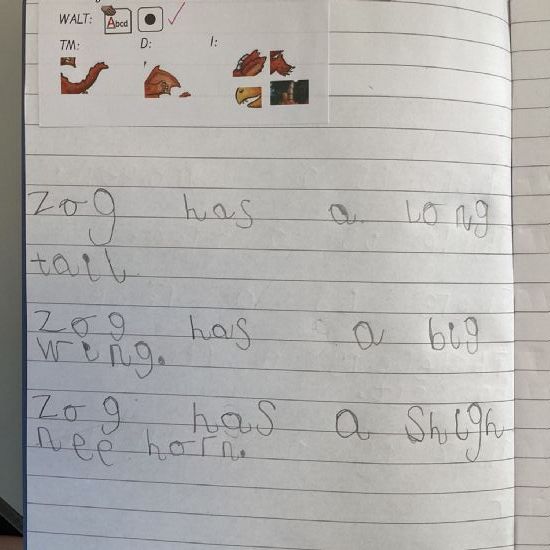 WALT: Abcd
TM: D: I:
Zog has a long
tail
Zog has a big
wing.
Zog has a shigh
nee horn.